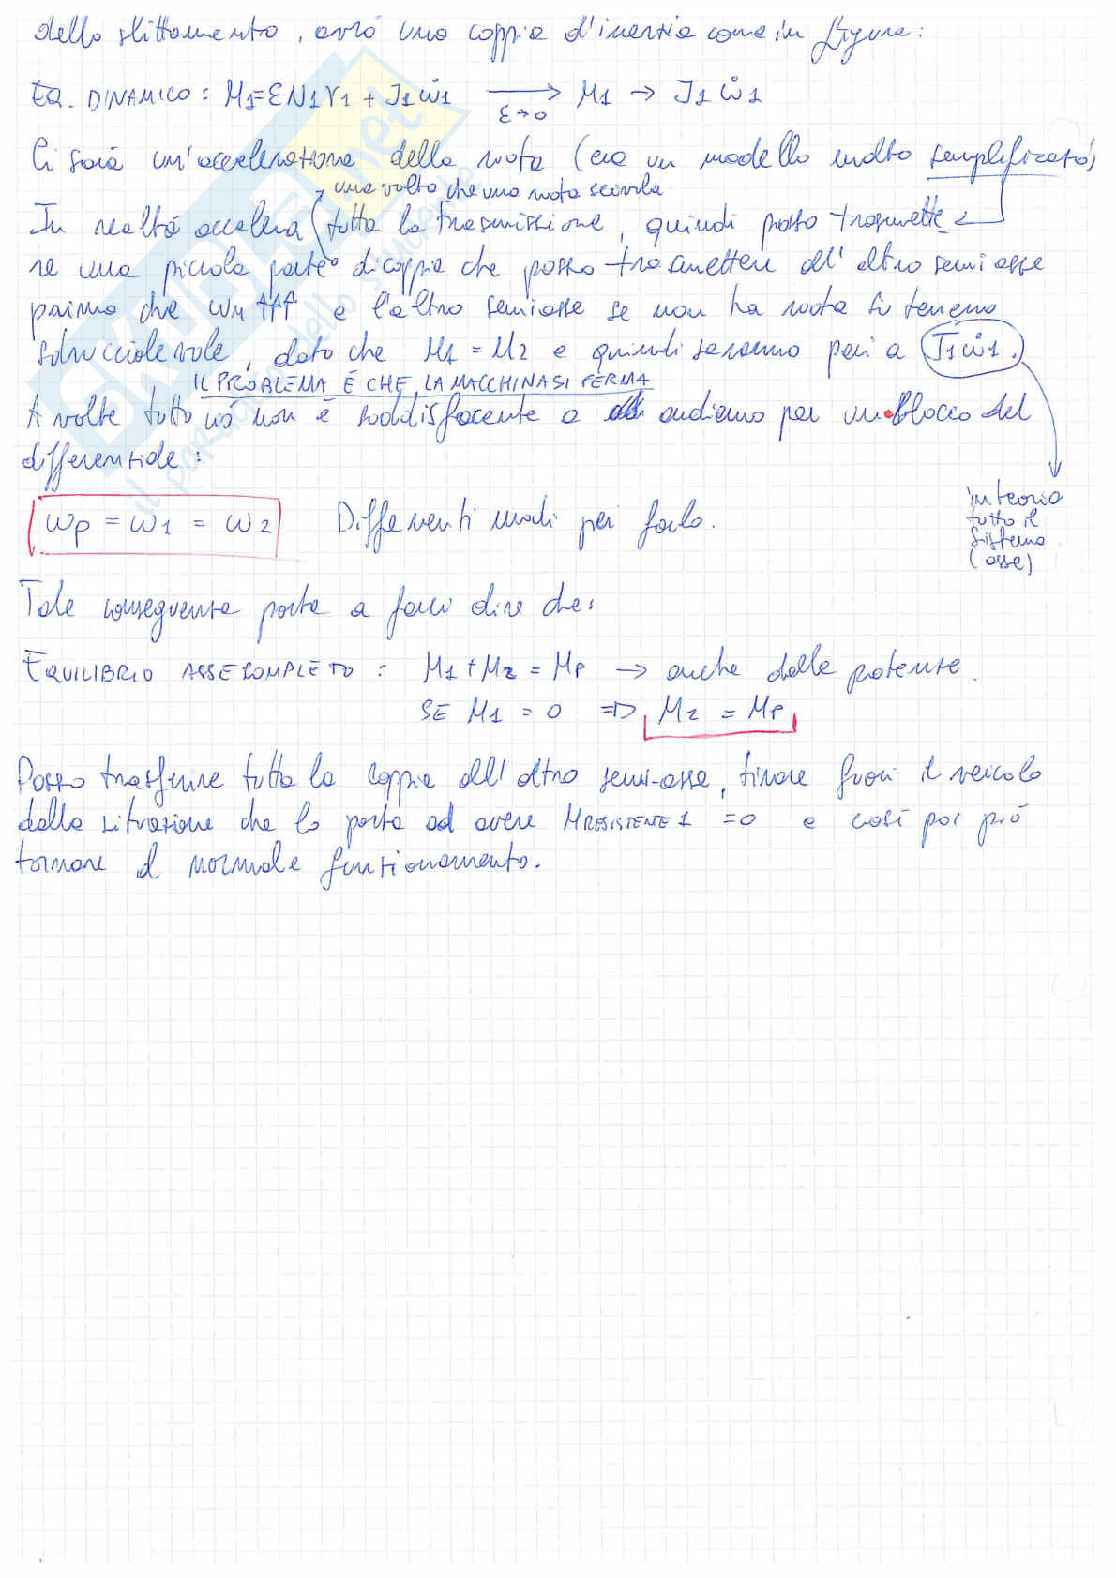 dello slittamento, avrò una coppia d'inerzia come in figura:
EQ. DINAMICO: M1=εN1r1 + J1ω̊1 →(ε→0) M1 → J1ω̊1
Ci sarà un'accelerazione della ruota (era un modello molto semplificato)
una volta che una ruota scivola
In realtà accelera tutta la trasmissione, quindi posso trasmette
re una piccola parte di coppia che posso trasmettere all'altro semiasse
primo che ωM ↑↑↑ e l'altro semiasse se non ha ruota su terreno
sdrucciolevole, dato che M1 = M2 e quindi saranno pari a J1ω̊1.
IL PROBLEMA È CHE LA MACCHINA SI FERMA
A volte tutto ciò non è soddisfacente e andiamo per un blocco del
differenziale:
in teoria
tutto il
sistema
(asse)
ωp = ω1 = ω2 Differenti modi per farlo.
Tale conseguenza porta a farci dire che:
EQUILIBRIO ASSE COMPLETO: M1+M2 = Mp → anche delle potenze.
SE M1 = 0 ⇒ M2 = Mp
Posso trasferire tutta la coppia all'altro semi-asse, tirare fuori il veicolo
dalla situazione che lo porta ad avere MRESISTENTE1 =0 e così poi può
tornare al normale funzionamento.
SKUOLA.net
il paradiso dello studente